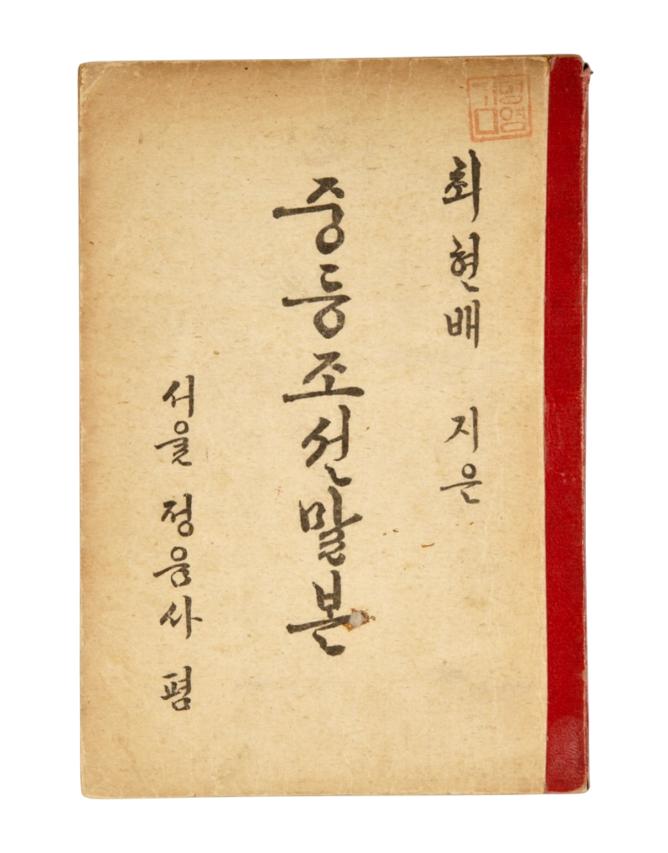 최현배 지은
중등조선말본
서울 정음사 폄